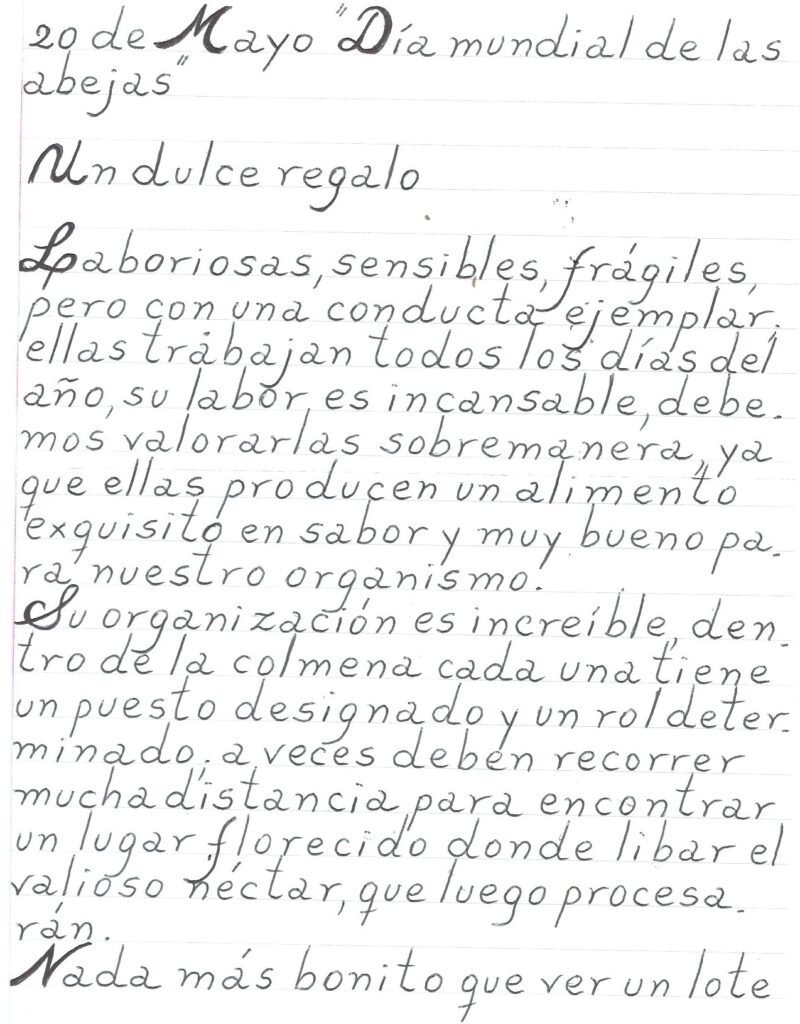 20 de Mayo "Día mundial de las
abejas"
Un dulce regalo
Laboriosas, sensibles, frágiles,
pero con una conducta ejemplar;
ellas trabajan todos los días del
año, su labor es incansable, debe-
mos valorarlas sobremanera, ya
que ellas producen un alimento
exquisito en sabor y muy bueno pa-
ra nuestro organismo.
Su organización es increíble, den-
tro de la colmena cada una tiene
un puesto designado y un rol deter-
minado; a veces deben recorrer
mucha distancia para encontrar
un lugar florecido donde libar el
valioso néctar, que luego procesa-
rán.
Nada más bonito que ver un lote